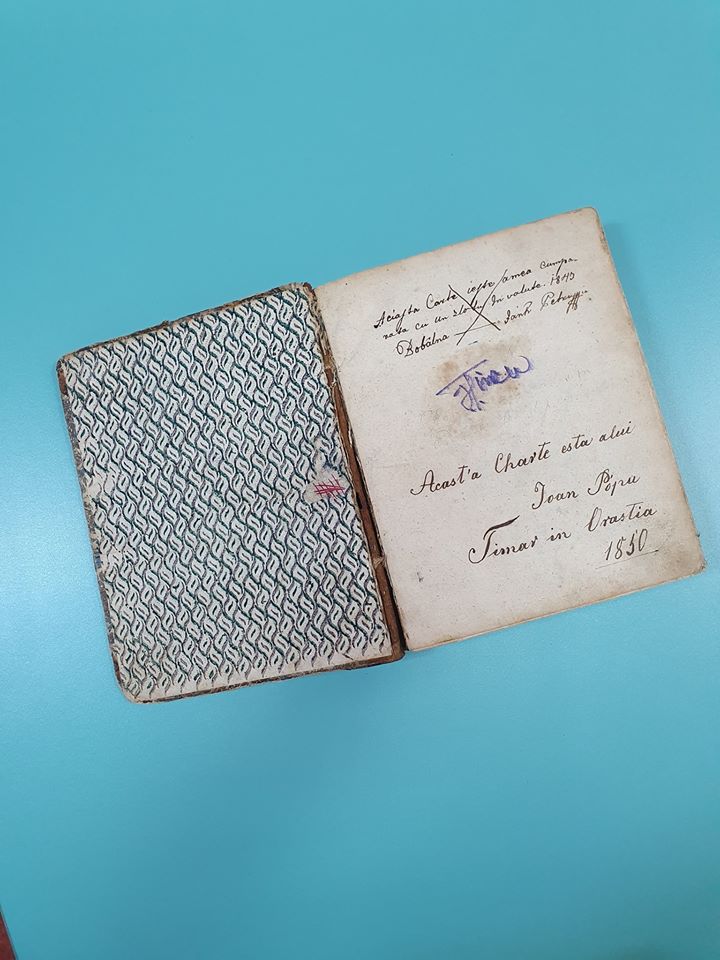 Aciasta Carte ieste amea cumpa-
rata cu un zlotu In valute. 1845
Bobâlna Iank
Acast'a Charte esta alui
Ioan Popu
Timar in Orastia
1850